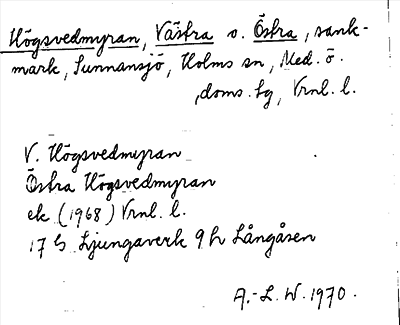 Högsvedmyran, Västra o. Östra, sank-
mark, Sunnansjö, Holms sn, Med. ö.
,doms.hg, Vrnl. l.
V. Högsvedmyran
Östra Högsvedmyran
ek (1968) Vrnl. l.
17 G Ljungaverk 9 h Långåsen
A.-L. W. 1970.